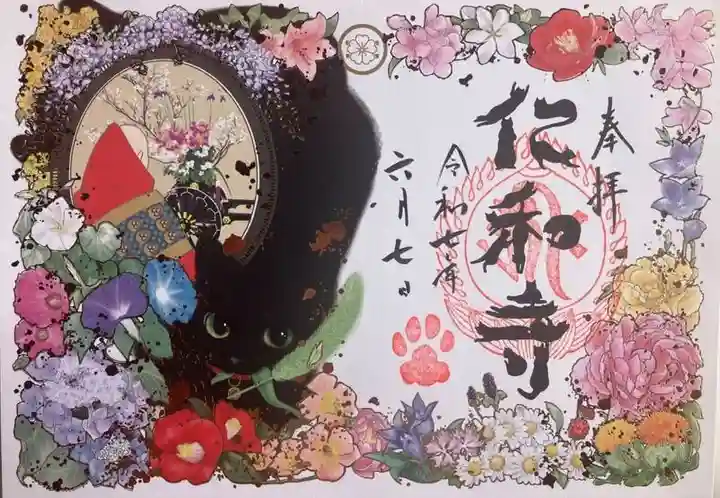 奉拝
仁和寺
令和年
六月七日